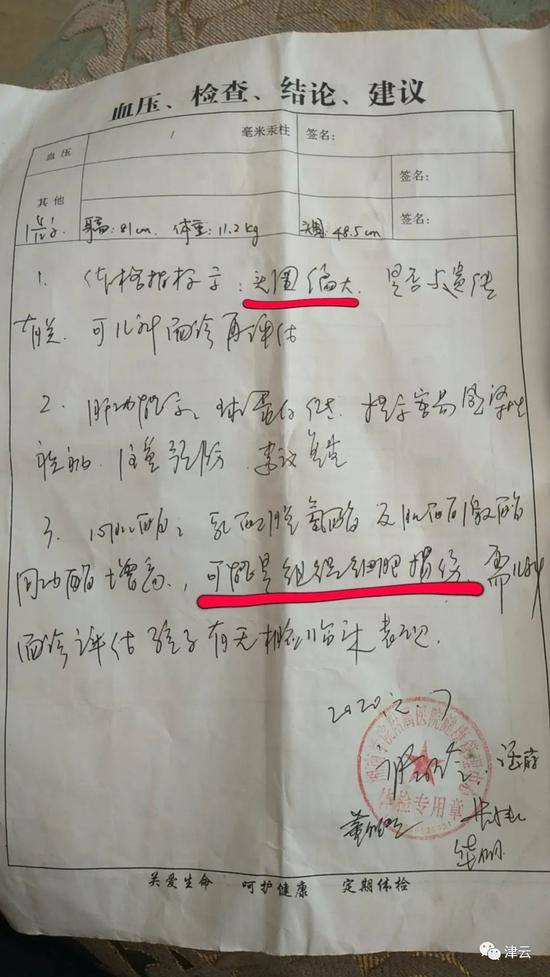 血压、检查、结论、建议
血压 / 毫米汞柱 签名:
签名:
其他 签名:
身高: 81cm. 体重: 11.2kg 头围: 48.5cm
1. 体格指标示: 头围偏大. 是否与遗传
有关. 可儿科面诊再评估
2. 球蛋白低. 提示容易
注重预防. 建议复查
3. 心肌酶: 乳酸脱氢酶及肌酸激酶
同功酶增高, 可能是组织细胞损伤. 需儿科
面诊评估孩子有无相关临床表现.
2020.2.7
体检专用章
关爱生命 呵护健康 定期体检
津云